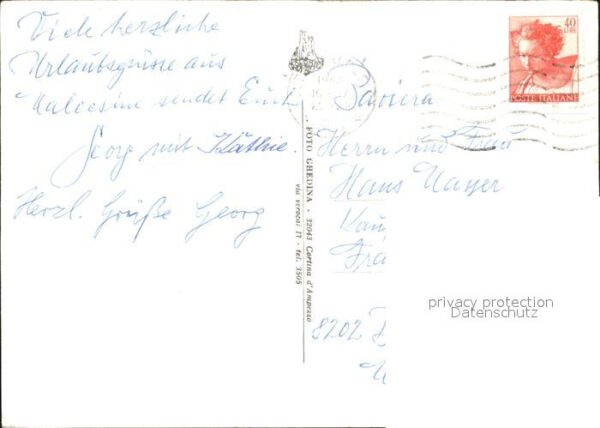 Viele herzliche
Urlaubsgrüsse aus
Malcesine sendet Euch
Georg mit Käthie.
Herzl. Grüße Georg
FOTO GHEDINA - 32043 Cortina d'Ampezzo
via verocai 17 - tel. 3505
40
LIRE
POSTE ITALIANE
Baviera
Herrn und Frau
Hans Mayer
8202
privacy protection
Datenschutz